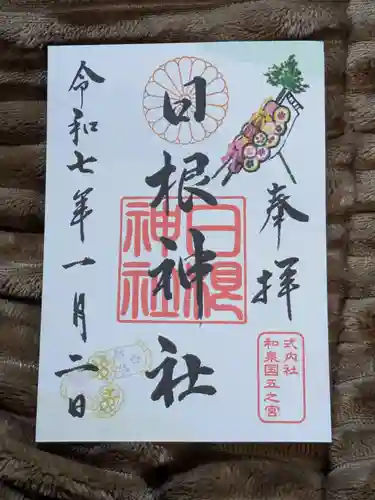 奉拝
日根神社
日根神社
式内社
和泉国五之宮
令和七年一月二日